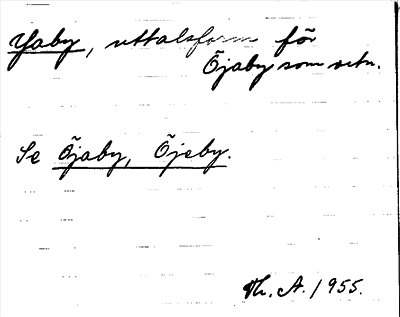 Yaby, uttalsform för
Öjaby som vetn.
Se Öjaby, Öjeby.
Th. A. 1955.